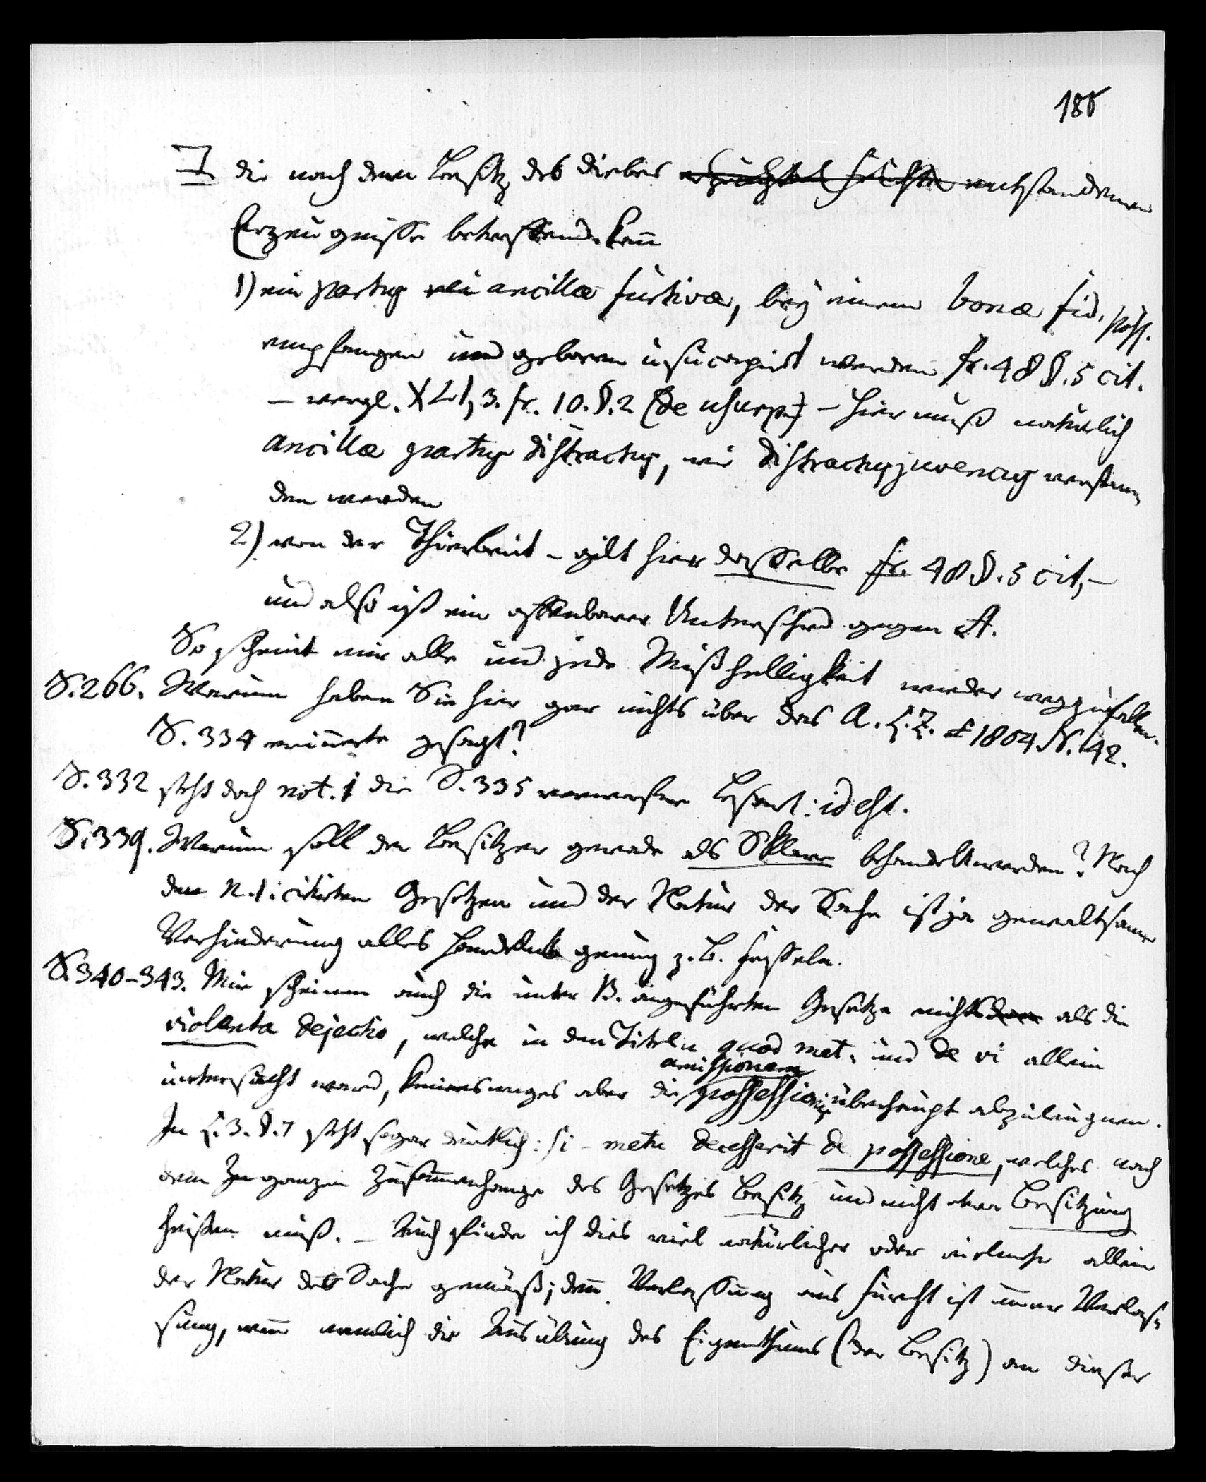 186
I die nach dem Besitz des Diebes erzeugten Früchte entstandenen
Erzeugnisse betreffend. kann
1) ein partus ancillæ furtivæ, bey einem bonæ fid. poss.
empfangen und geboren usucapirt werden fr. 48 §. 5 cit.
– vergl. XLI, 3. fr. 10. §. 2 (de usurp.) – hier muß natürlich
ancillæ partus distractus, wie distractus juvencus verstan¬
den werden
2) von der Thierbrut – gilt hier dasselbe fr. 48. §. 5 cit, –
und also ist ein offenbarer Unterschied gegen A.
So scheint mir alle und jede Mißhelligkeit wieder wegzufallen.
S. 266. Warum haben Sie hier gar nichts über das A. L. Z. 1804 N. 42.
S. 334 erinnerte gesagt?
S. 332 steht doch not. 1 die S. 335 verworfene Lesart: id est.
S. 339. Warum soll der Besitzer gerade als Sklave behandelt werden? Nach
den n. 1. citirten Gesetzen und der Natur der Sache ist ja gewaltsame
Verhinderung alles Handelns genug z. B. Fesseln.
S. 340–343. Mir scheinen auch die unter B. angeführten Gesetze nichts als die
violenta dejectio, welche in den Titeln quod met. und de vi allein
amissionem
untersucht ward, keinesweges aber die possessionis überhaupt abzuläugnen.
In L. 3. §. 7 steht sogar deutlich: si – metu decesserit de possessione, welches nach
dem ganzen Zusammenhange des Gesetzes Besitz und nicht etwa Besitzung
heißen muß. – Auch finde ich dies viel natürlicher oder vielmehr allein
der Natur der Sache gemäß; denn Verlassung aus Furcht ist immer Verlas¬
sung, wenn nemlich die Ausübung des Eigenthums (der Besitz) an dieser